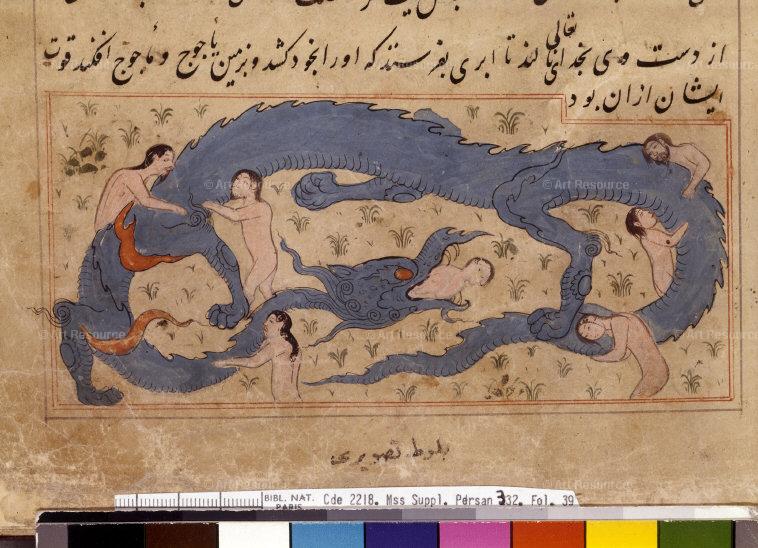 از دست وی بخدای تعالی نالند تا ابری بفرستد که اورا بخود کشد و بزمین یأجوج و مأجوج افکند قوت
ایشان ازان بود
© Art Resource
© Art Resource
© Art Resource
© Art Resource
© Art Resource
© Art Resource
تصویری
BIBL. NAT. PARIS Cde 2218. Mss Suppl. Persan 332. Fol. 39